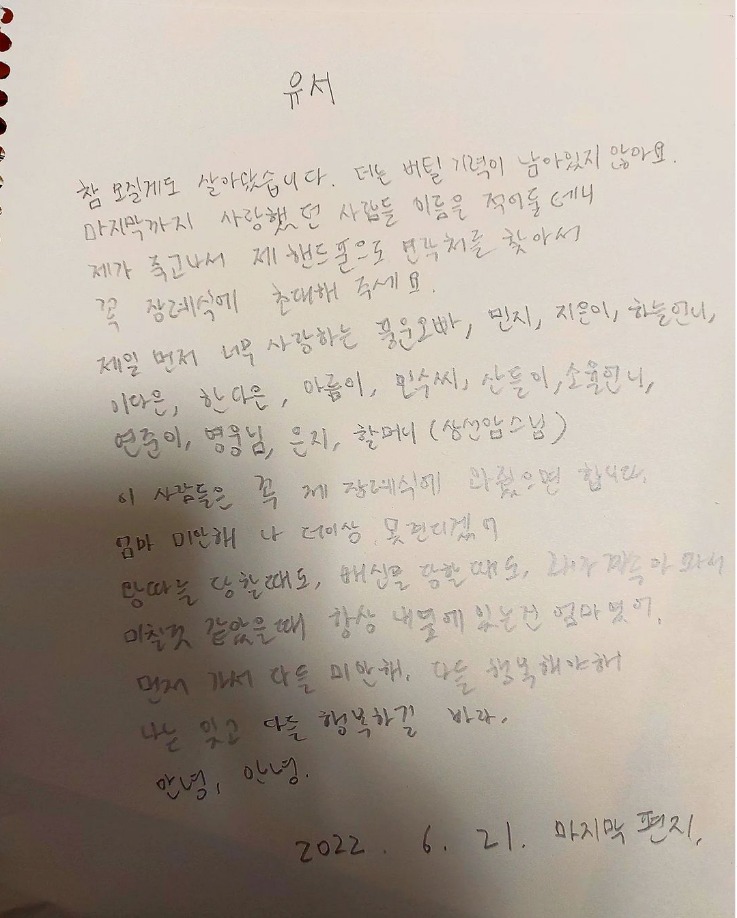 유서
참 모질게도 살아왔습니다. 더는 버틸 기력이 남아있지 않아요.
마지막까지 사랑했던 사람들 이름을 적어둘테니
제가 죽고나서 제 핸드폰으로 연락처를 찾아서
꼭 장례식에 초대해 주세요.
제일 먼저 너무 사랑하는 오빠, 민지, 지은이, 하늘언니,
이다은, 한다은, 아름이, 민수씨, 산들이, 소율언니,
연준이, 영웅님, 은지, 할머니 (상선암스님)
이 사람들은 꼭 제 장례식에 와줬으면 합니다.
엄마 미안해 나 더이상 못견디겠어
왕따를 당할때도, 배신을 당할때도, 아파서
미칠것 같았을때 항상 내옆에 있는건 엄마였어.
먼저 가서 다들 미안해. 다들 행복해야해
나는 잊고 다들 행복하길 바라.
안녕, 안녕.
2022. 6. 21. 마지막 편지.